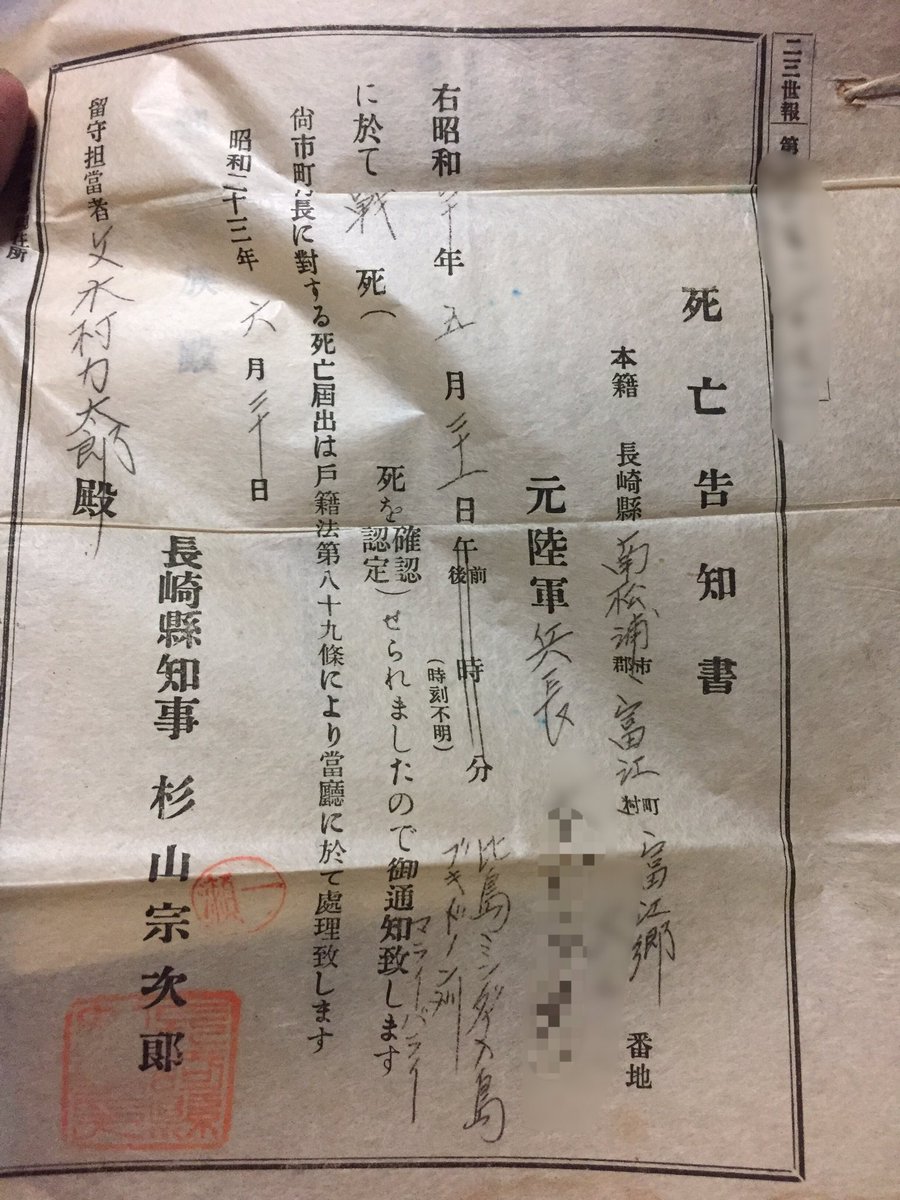 二三世報 第
死亡告知書
本籍 長崎縣 南松浦 市郡 富江 町村 富江郷 番地
元陸軍 兵長
右昭和 二十 年 五 月 二十一 日 午前後 時 分 (時刻不明) 比島ミンダナオ島
ブキドノン州
マライバライ
に於て 戰 死( 死を確認認定)せられましたので御通知致します
尙市町村長に對する死亡屆出は戶籍法第八十九條により當廳に於て處理致します
昭和二十三年 六 月 三十 日
長崎縣知事 杉山宗次郎
留守担當者 父 水村力太郎 殿